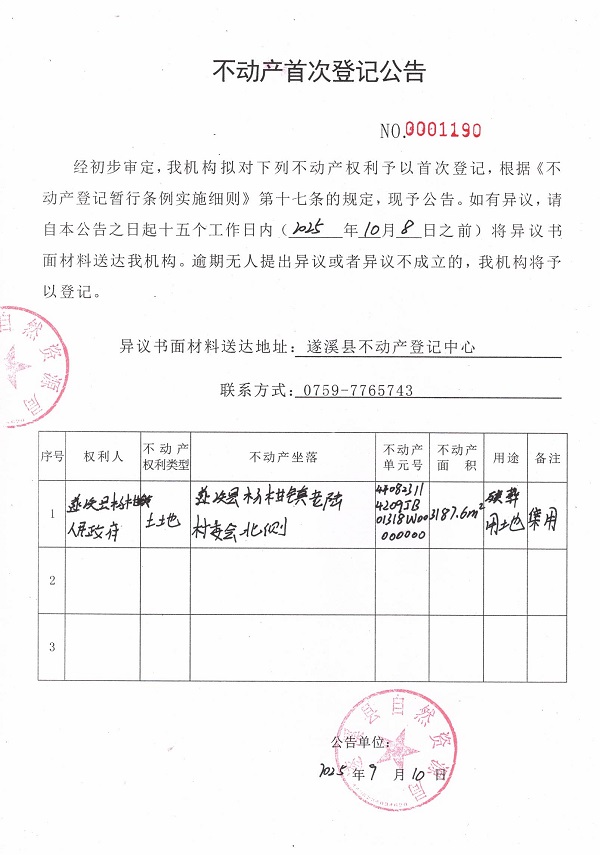 不动产首次登记公告
NO.0001190
经初步审定，我机构拟对下列不动产权利予以首次登记，根据《不
动产登记暂行条例实施细则》第十七条的规定，现予公告。如有异议，请
自本公告之日起十五个工作日内（2025 年10月8日之前）将异议书
面材料送达我机构。逾期无人提出异议或者异议不成立的，我机构将予
以登记。
自然资源局
异议书面材料送达地址：遂溪县不动产登记中心
联系方式：0759-7765743
序号 权利人 不动产权利类型 不动产坐落 不动产单元号 不动产面积 用途 备注
1 遂溪县杨柑镇人民政府 土地 遂溪县杨柑镇老陆村委会北侧 440823114209JB01318W00000000 3187.6m² 殡葬用土地 集用
2
3
遂溪县自然资源局
公告单位：
2025年9月10日